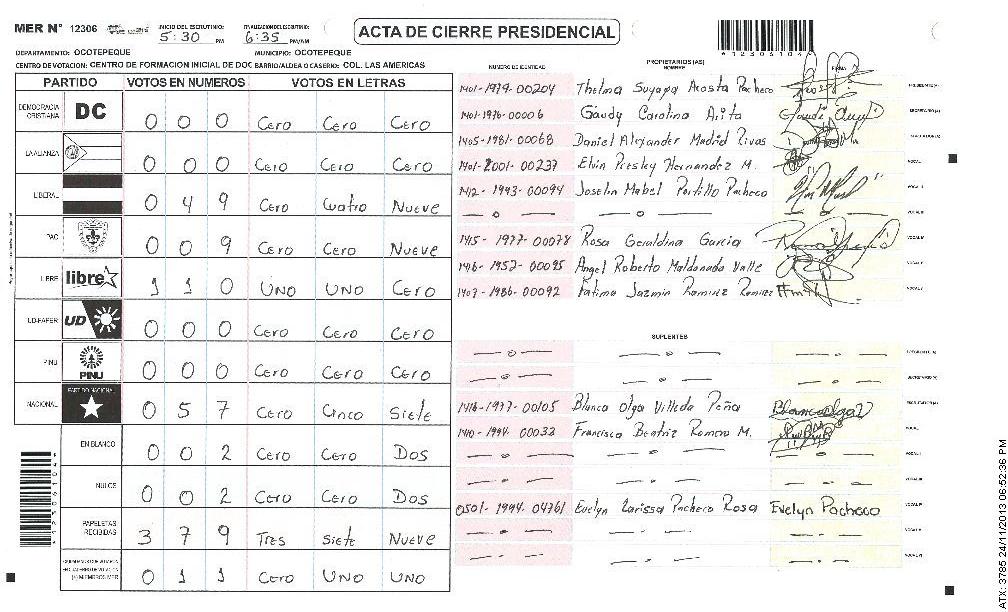 MER N° 12306 INICIO DEL ESCRUTINIO: 5:30 PM FINALIZACION DEL ESCRUTINIO: 6:35 PM/AM
ACTA DE CIERRE PRESIDENCIAL
4123061041
DEPARTAMENTO: OCOTEPEQUE MUNICIPIO: OCOTEPEQUE
CENTRO DE VOTACION: CENTRO DE FORMACION INICIAL DE DOC BARRIO/ALDEA O CASERIO: COL. LAS AMERICAS
PARTIDO VOTOS EN NUMEROS VOTOS EN LETRAS
DEMOCRACIA CRISTIANA DC 0 0 0 Cero Cero Cero
LA ALIANZA 0 0 0 Cero Cero Cero
LIBERAL 0 4 9 Cero Cuatro Nueve
PAC 0 0 9 Cero Cero Nueve
LIBRE libre 1 1 0 UNO UNO Cero
UD-FAPER UD 0 0 0 Cero Cero Cero
PINU PINU 0 0 0 Cero Cero Cero
NACIONAL PARTIDO NACIONAL 0 5 7 Cero Cinco Siete
EN BLANCO 0 0 2 Cero Cero Dos
NULOS 0 0 2 Cero Cero Dos
PAPELETAS RECIBIDAS 3 7 9 Tres Siete Nueve
MIEMBROS MER 0 1 1 Cero UNO UNO
NUMERO DE IDENTIDAD PROPIETARIOS (AS) NOMBRE FIRMA
1401-1979-00204 Thelma Suyapa Acosta Pacheco PRESIDENTE (A)
1401-1976-00006 Gaudy Carolina Arita SECRETARIO (A)
1405-1981-00068 Daniel Alejander Madrid Rivas ESCRUTADOR (A)
1401-2001-00237 Elvin Presley Hernandez M. VOCAL I
1412-1993-00094 Joselin Mabel Portillo Pacheco VOCAL II
VOCAL III
1415-1977-00078 Rosa Geraldina Garcia VOCAL IV
1416-1952-00095 Angel Roberto Maldonado Valle VOCAL V
1407-1986-00092 Fatima Jazmin Ramirez Ramirez
SUPLENTES
PRESIDENTE (A)
SECRETARIO (A)
1416-1977-00105 Blanca Olga Villeda Peña Blanca Olga V ESCRUTADOR (A)
1410-1994-00033 Francisca Beatriz Romero M. VOCAL I
VOCAL II
VOCAL III
0501-1994-04761 Evelyn Larissa Pacheco Rosa Evelyn Pacheco VOCAL IV
VOCAL V
VOCAL VI
4123061041
ATX: 3785 24/11/2013 06:52:36 PM